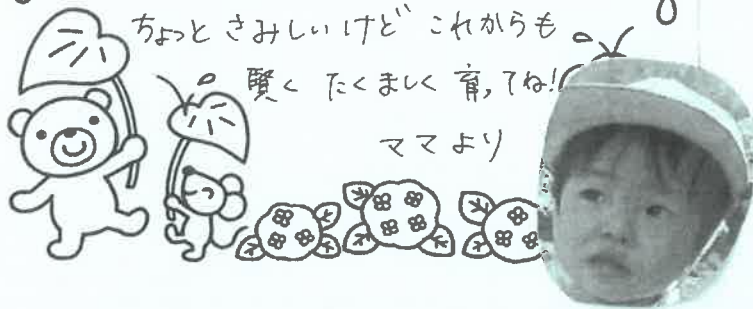 ちょっと さみしいけど これからも
賢く たくましく 育ってね!
ママより